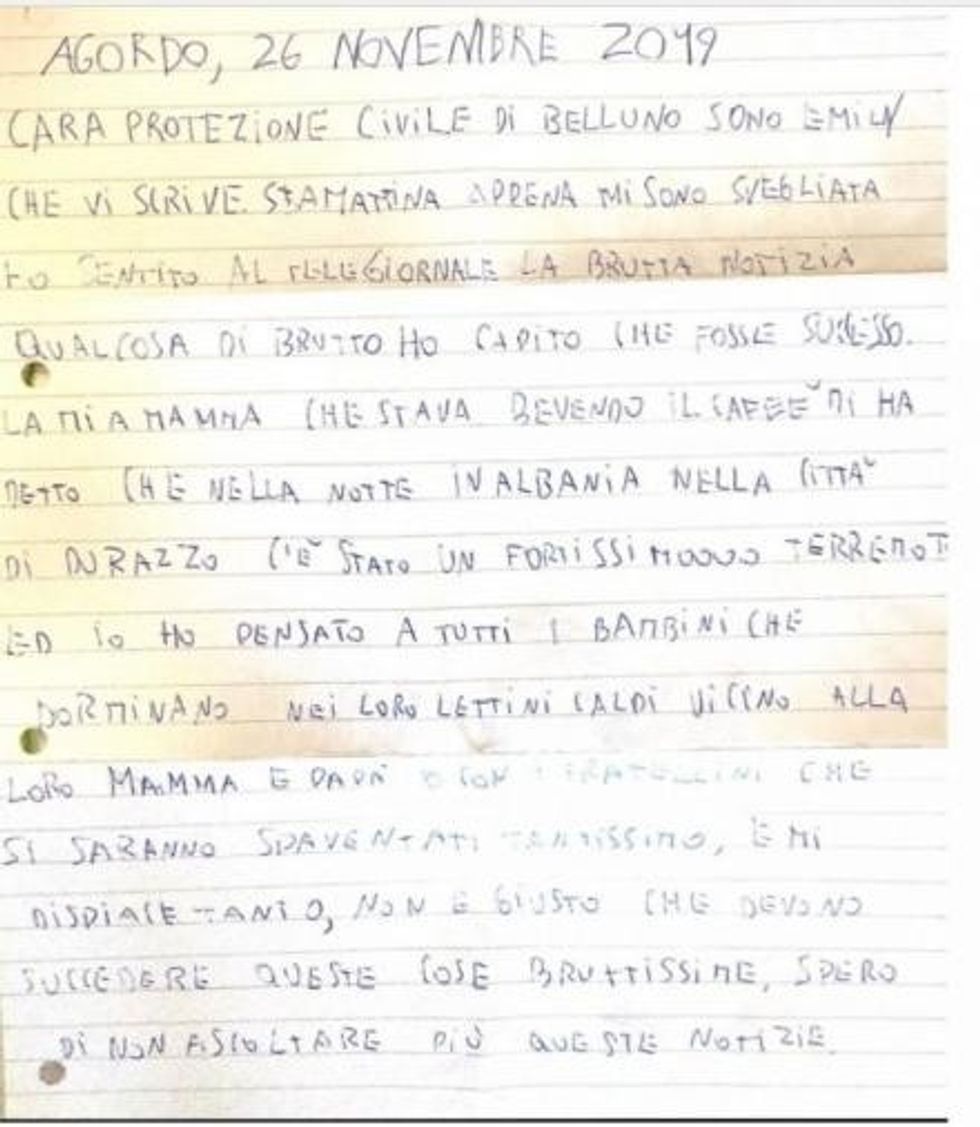 AGORDO, 26 NOVEMBRE 2019
CARA PROTEZIONE CIVILE DI BELLUNO SONO EMILY
CHE VI SCRIVE. STAMATTINA APPENA MI SONO SVEGLIATA
HO SENTITO AL TELEGIORNALE LA BRUTTA NOTIZIA
QUALCOSA DI BRUTTO HO CAPITO CHE FOSSE SUCCESSO.
LA MIA MAMMA CHE STAVA BEVENDO IL CAFEEˇ MI HA
DETTO CHE NELLA NOTTE IN ALBANIA NELLA CITTAˇ
DI DURAZZO C'Eˇ STATO UN FORTISSIMOOUO TERREMOT
ED IO HO PENSATO A TUTTI I BAMBINI CHE
DORMIVANO NEI LORO LETTINI CALDI VICINO ALLA
LORO MAMMA E PAPÀ O CON I FRATELLINI CHE
SI SARANNO SPAVENTATI TANTISSIMO, E MI
DISPIACE TANTO, NON E GIUSTO CHE DEVONO
SUCCEDERE QUESTE COSE BRUTTISSIME, SPERO
DI NON ASCOLTARE PIÙ QUESTE NOTIZIE.